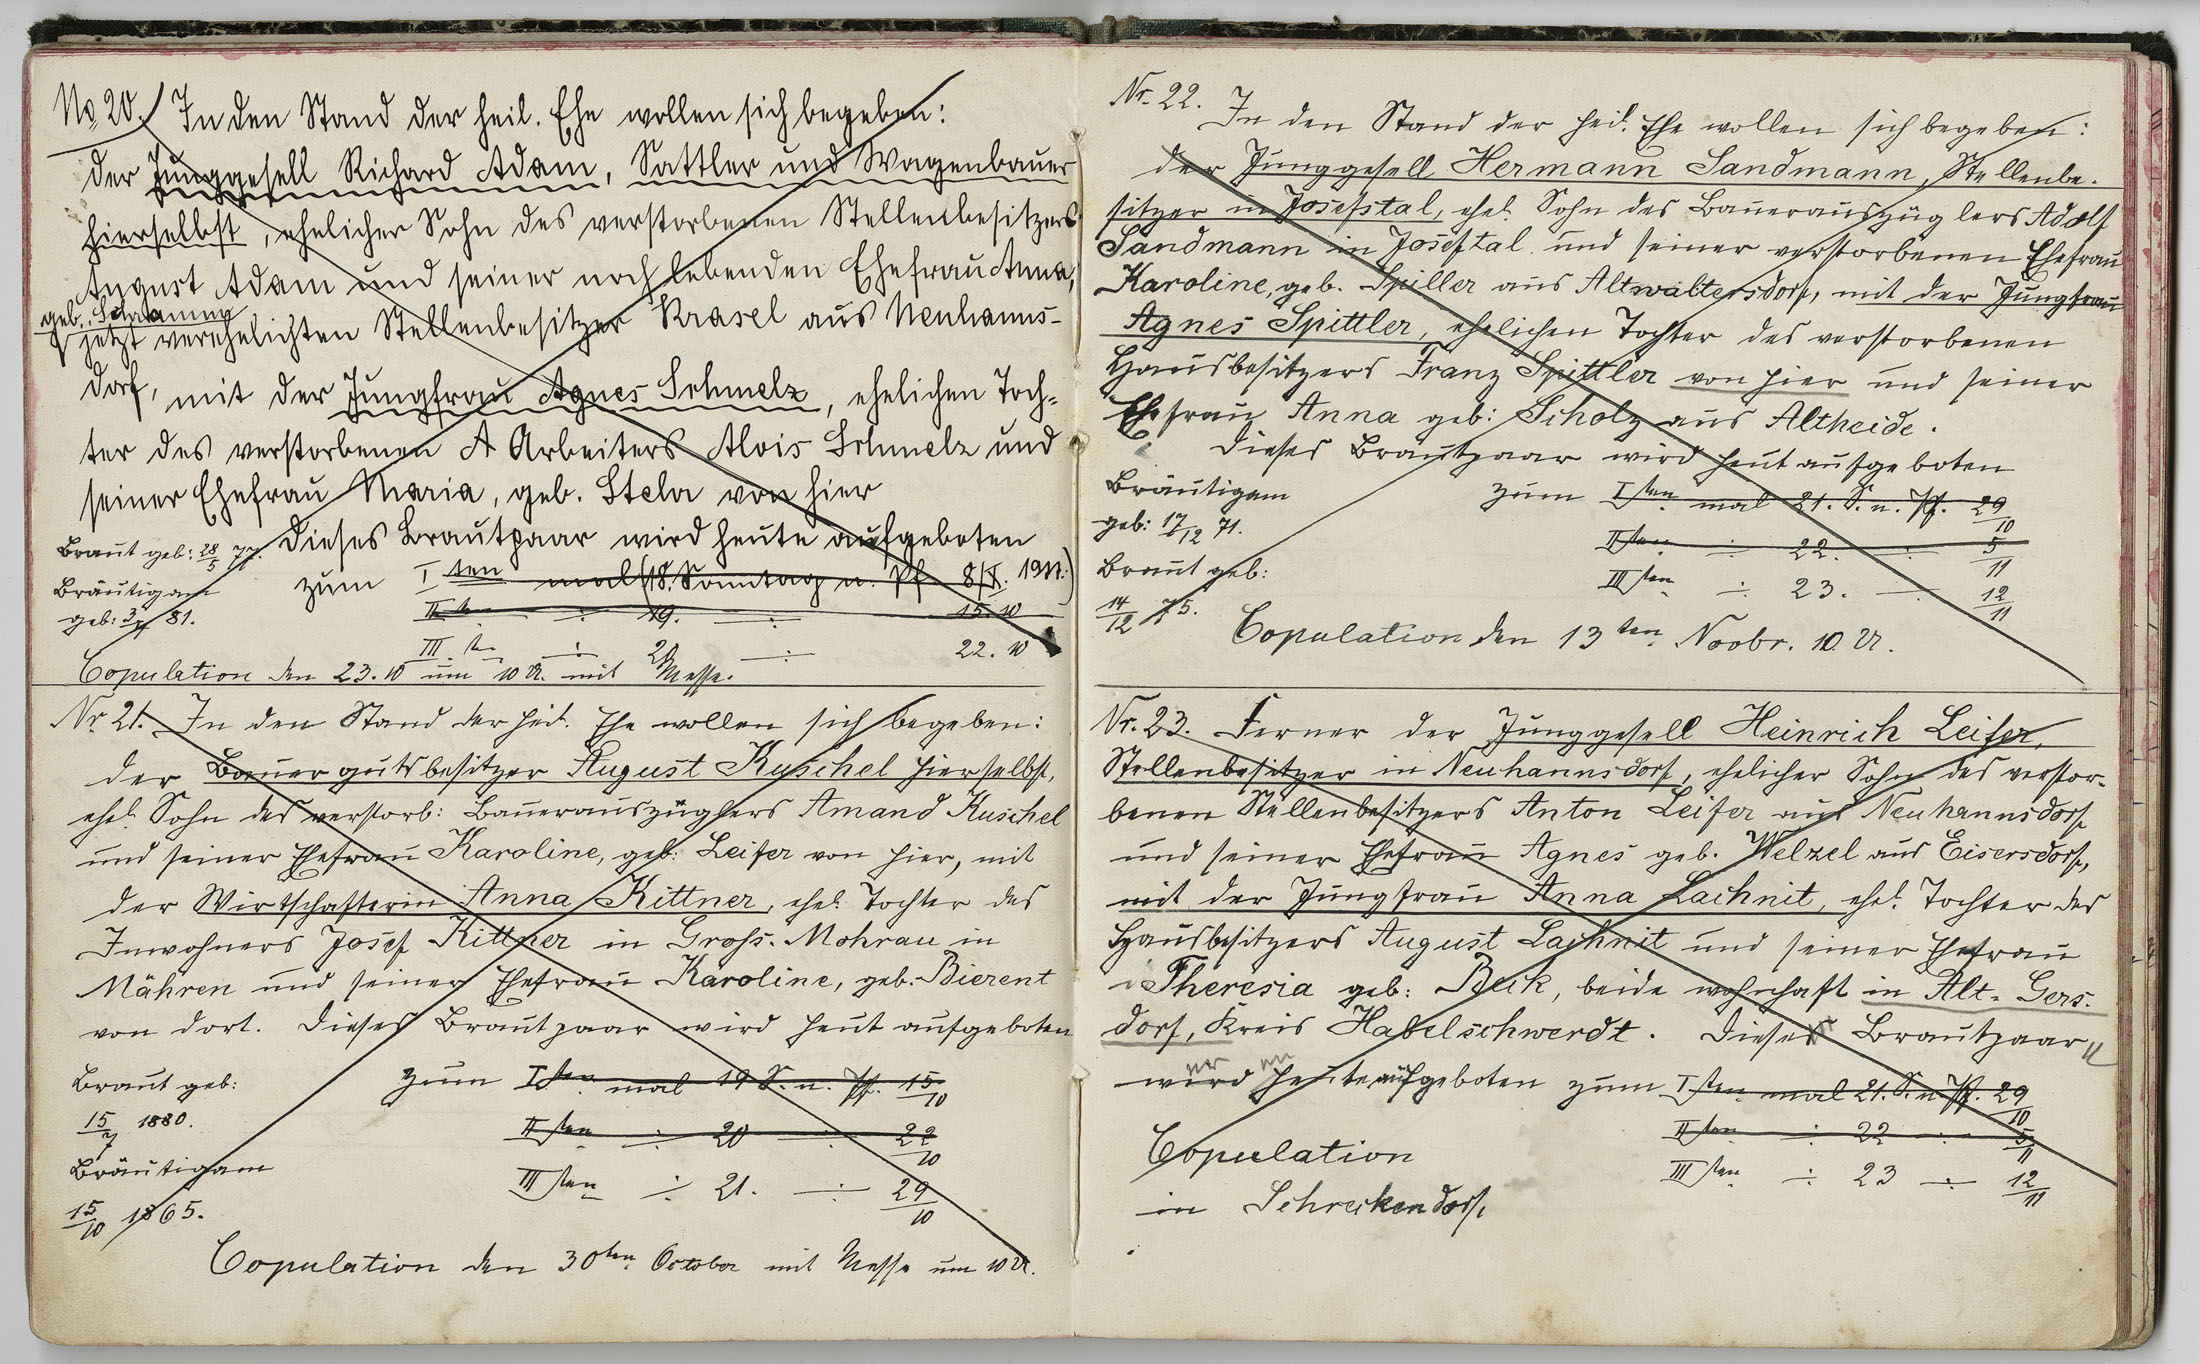 No 20. In den Stand der heil. Ehe wollen sich begeben:
der Junggesell Richard Adam, Sattler und Wagenbauer
hierselbst, ehelicher Sohn des verstorbenen Stellenbesitzers
August Adam und seiner noch lebenden Ehefrau Anna,
geb.
jetzt verehelichten Stellenbesitzer Krasel aus Neuhanns-
dorf, mit der Jungfrau Agnes Schmelz, ehelichen Toch-
ter des verstorbenen A Arbeiters Alois Schmelz und
seiner Ehefrau Maria, geb. von hier
Dieses Brautpaar wird heute aufgeboten
Braut geb: 28/5 77.
zum I ten mal (18. Sonntag n. Pf 8/X. 1911.)
Bräutigam
geb: 81.
II ten ÷ 19. ÷ 15. 10
III ten ÷ 20 ÷ 22. 10
Copulation den 23. 10 um 10 U. mit Messe.
Nr. 21. In den Stand der heil. Ehe wollen sich begeben:
der Bauergutsbesitzer August Kuschel hierselbst,
ehel. Sohn des verstorb: Bauerauszüglers Amand Kuschel
und seiner Ehefrau Karoline, geb: Leifer von hier, mit
der Wirtschafterin Anna Kittner, ehel. Tochter des
Inwohners Josef Kittner in Groß-Mohrau in
Mähren und seiner Ehefrau Karoline, geb. Bierent
von dort. Dieses Brautpaar wird heut aufgeboten
Braut geb:
15/7 1880.
zum I ten mal 19 S. n. Pf. 15/10
II ten ÷ 20 ÷ 22/10
Bräutigam
15/10 1865.
III ten ÷ 21. ÷ 29/10
Copulation den 30ten October mit Messe um 10 U.
Nr. 22. In den Stand der heil. Ehe wollen sich begeben:
der Junggesell Hermann Sandmann, Stellenbe-
sitzer in Josefstal, ehel. Sohn des Bauerauszüglers Adolf
Sandmann in Joseftal und seiner verstorbenen Ehefrau
Karoline, geb. Spiller aus Altwaltersdorf, mit der Jungfrau
Agnes Spittler, ehelichen Tochter des verstorbenen
Hausbesitzers Franz Spittler von hier und seiner
Ehefrau Anna geb: Scholz aus Altheide.
Dieses Brautpaar wird heut aufgeboten
Bräutigam
geb: 17/12 71.
zum I ten mal 21. S. n. Pf. 29/10
II ten ÷ 22. ÷ 5/11
Braut geb:
14/12 75.
III ten ÷ 23. ÷ 12/11
Copulation den 13ten Novbr. 10 U.
Nr. 23. Ferner der Junggesell Heinrich Leifer,
Stellenbesitzer in Neuhannsdorf, ehelicher Sohn des verstor-
benen Stellenbesitzers Anton Leifer aus Neuhannsdorf
und seiner Ehefrau Agnes geb. Welzel aus Eisersdorf,
mit der Jungfrau Anna Lachnit, ehel. Tochter des
Hausbesitzers August Lachnit und seiner Ehefrau
Theresia geb: beide wohnhaft in Alt-Gers-
dorf, Kreis Habelschwerdt. Dieses Brautpaar
wird heute aufgeboten zum I ten mal 21. S. n. Pf. 29/10
II ten ÷ 22 ÷ 5/11
III ten ÷ 23 ÷ 12/11
Copulation
in Schreckendorf.